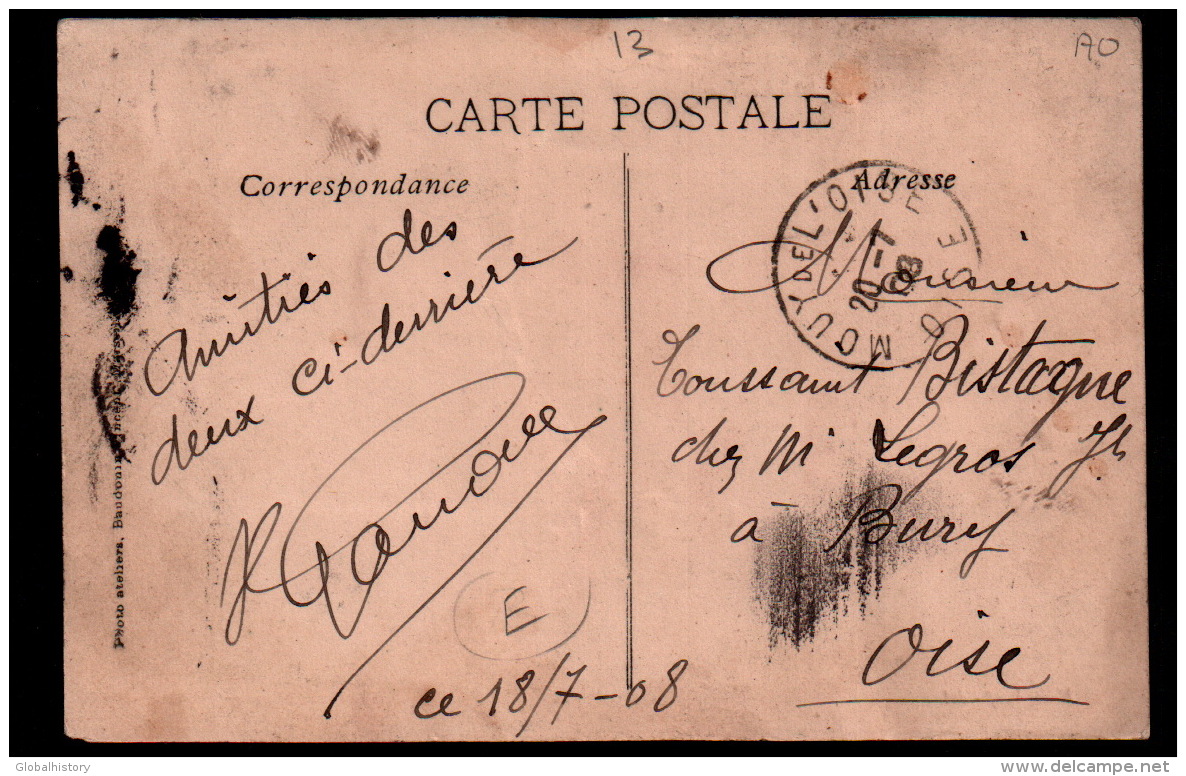 13
AO
CARTE POSTALE
Correspondance
Adresse
MOUY DE L'OISE
20 -7
OISE
Amitiés des
deux ci-derrière
ce 18/7-08
E
Monsieur
Toussaint Bistagne
chez M Legros
à Bury
Oise
Photo ateliers, Baudouin
Globalhistory
delcampe.net